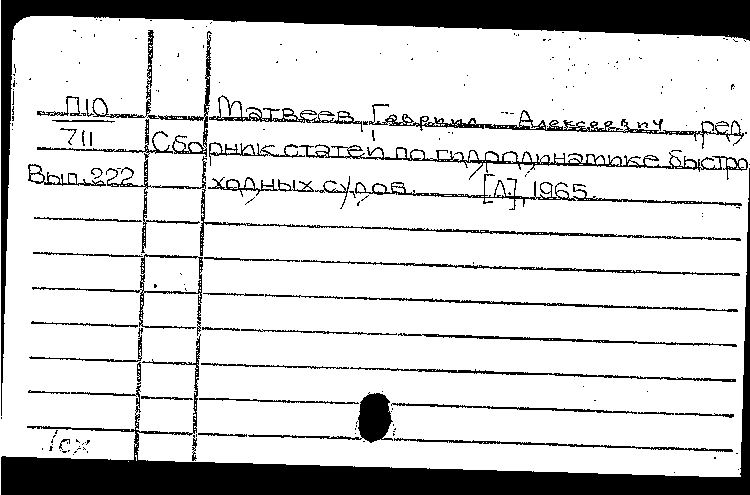 П10 Матвеев, Гавриил Алексеевич, ред.
711 Сборник статей по гидродинамике быстро
Вып. 222 ходных судов. [Л], 1965.